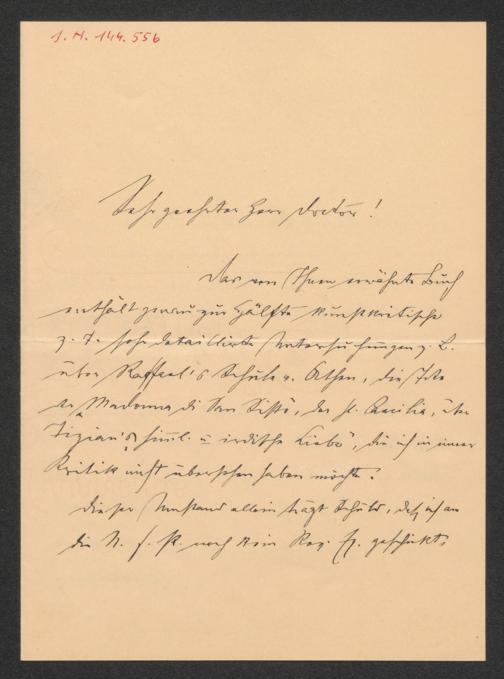 J. N. 144.556
Sehr geehrter Herr Doctor!
Das von Ihnen erwähnte Buch
enthält genau zur Hälfte kunstkritische
z. T. sehr detaillirte Untersuchungen z. B.
über Raffael's Schule v. Athen, die
Madonna di San Sisto, der hl. Caecilia, über
Tizian's himml. u irdische Liebe", die ich in einer
Kritik nicht übersehen haben möchte.
Dieser Umstand allein trägt Schuld, daß ich an
die N. f. P. noch kein Rez. Ex. geschickt.